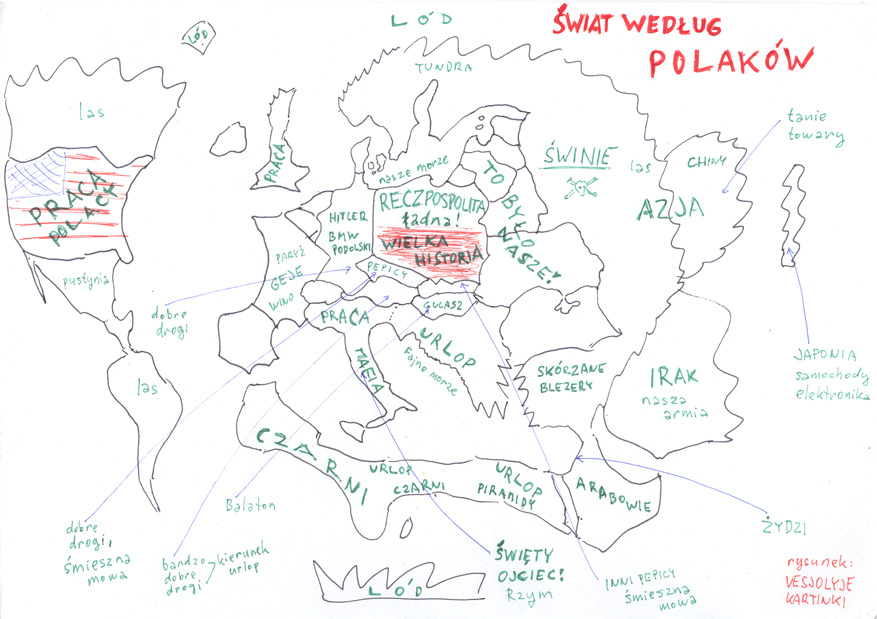 ŚWIAT WEDŁUG
POLAKÓW
LÓD
LÓD
TUNDRA
las
PRACA
POLACY
pustynia
las
PRACA
nasze morze
TO BYŁO NASZE!
ŚWINIE
las
CHINY
AZJA
tanie
towary
RECZPOSPOLITA
ładna!
WIELKA
HISTORIA
HITLER
BMW
PODOLSKI
PARYŻ
GEJE
WINO
PEPICY
GULASZ
dobre
drogi
PRACA
MAFIA
URLOP
Fajne morze
SKÓRZANE
BLEZERY
IRAK
nasza
armia
JAPONIA
samochody
elektronika
CZARNI
URLOP
CZARNI
URLOP
PIRAMIDY
ARABOWIE
Balaton
ŻYDZI
dobre
drogi,
śmieszna
mowa
bardzo
dobre
drogi
kierunek
urlop
ŚWIĘTY
OJCIEC!
Rzym
INNI PEPICY
śmieszna
mowa
LÓD
rysunek:
VESJOLYJE
KARTINKI